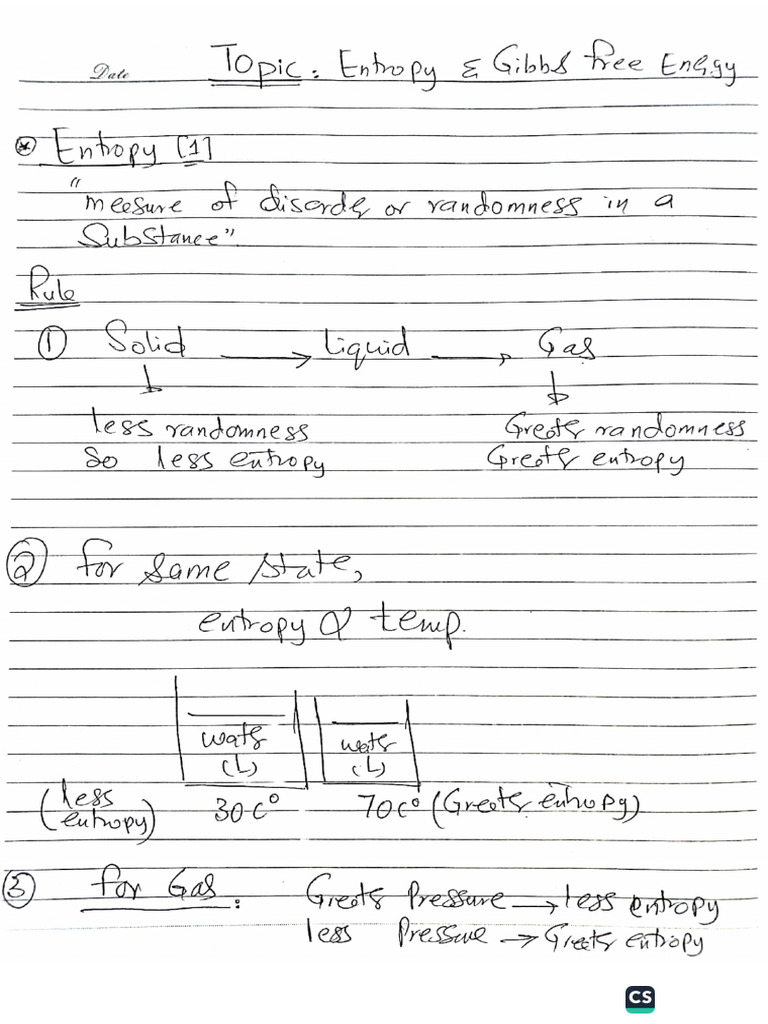 Date
Topic: Entropy & Gibbs free Energy
Entropy [1]
"measure of disorder or randomness in a
Substance"
Rule
① Solid → Liquid → Gas
less randomness Greater randomness
So less entropy Greater entropy
② for same state,
entropy α temp.
water water
(L) (L)
(less entropy) 30C° 70C° (Greater entropy)
③ for Gas: Greater Pressure → less entropy
less Pressure → Greater entropy
CS